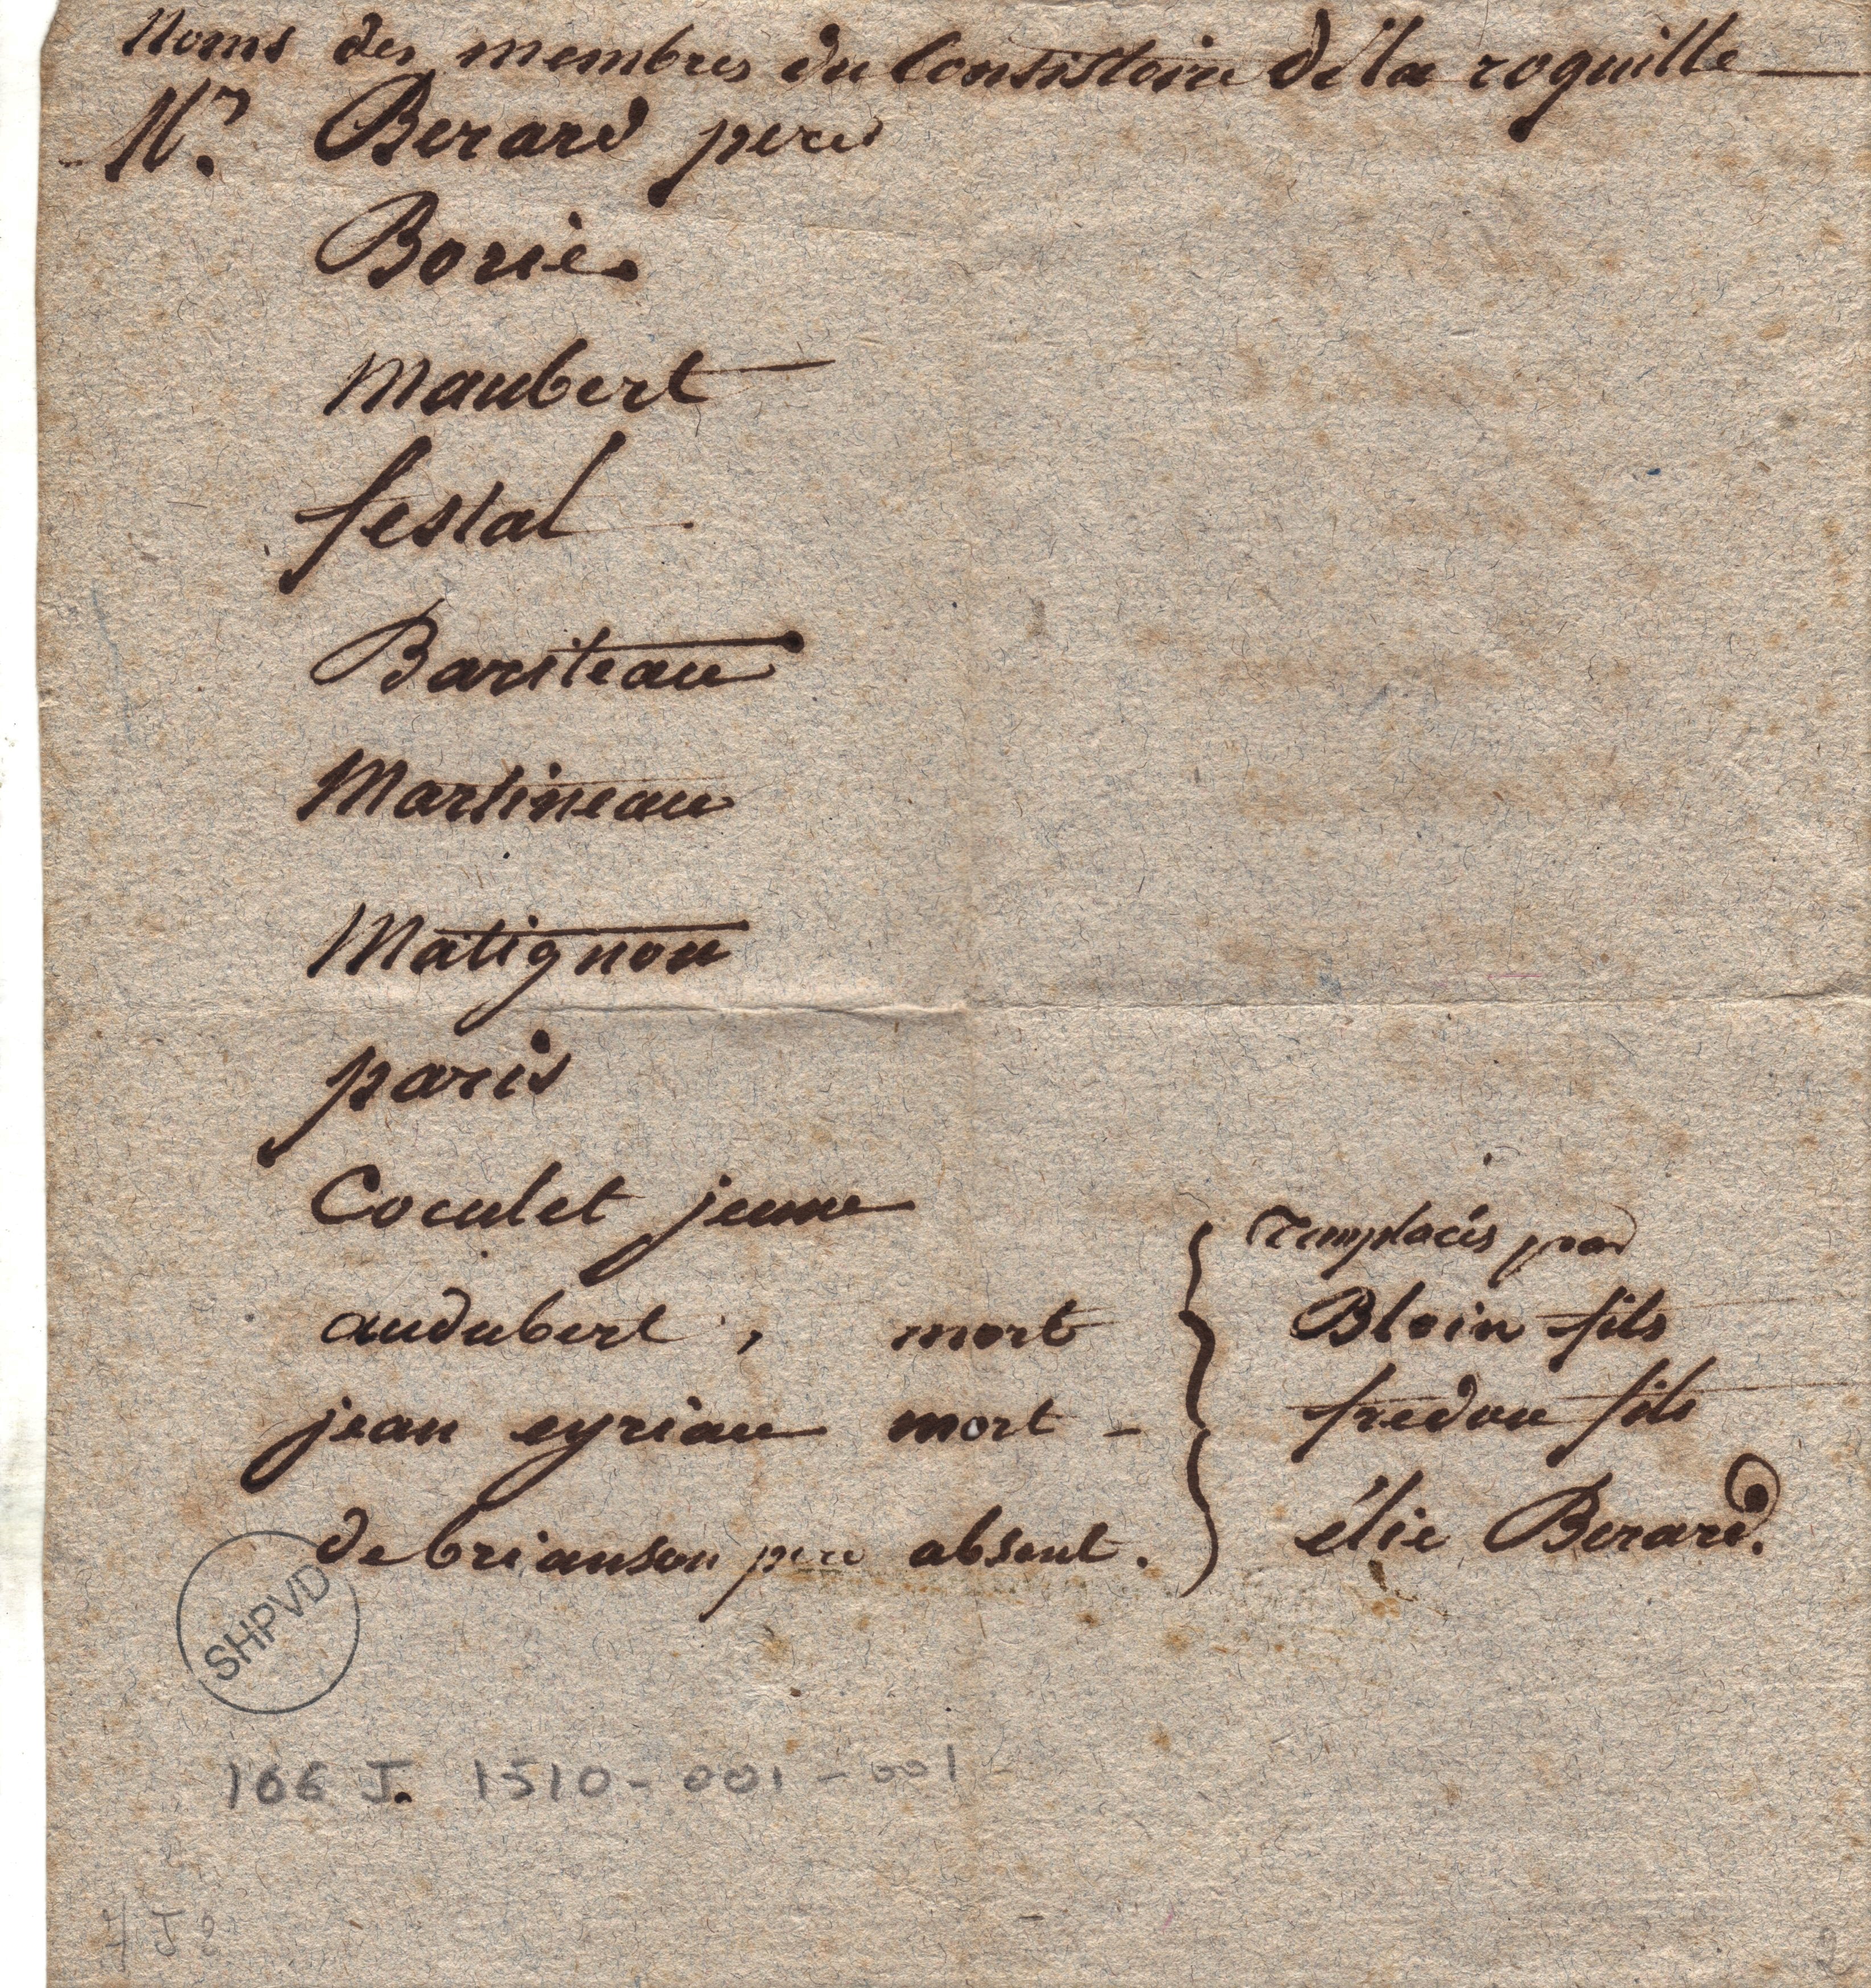 Noms des membres du Consistoire de la roquille
Mr. Berard pere
Borie
Maubert
festal
Bariteau
Martineau
Matignon
paris
Coculet jeune
audubert, mort
jean eyriau mort -
debrianson pere absent.
Remplacés par
Bloin fils
fredou fils
élie Berard.
SHPVD
166 J. 1510-001-001